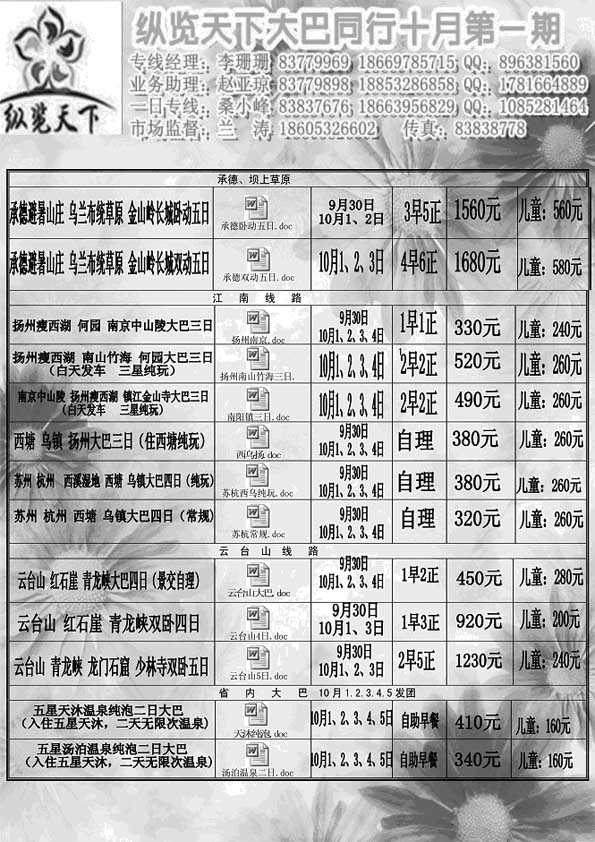 纵览天下
纵览天下大巴同行十月第一期
专线经理：李珊珊 83779969 18669785715 QQ：896381560
业务助理：赵亚琼 83779898 18853286858 QQ：1781664889
一日专线：桑小峰 83837676 18663956829 QQ：1085281464
市场监督：兰 涛 18605326602 传真：83838778
承德、坝上草原
承德避暑山庄 乌兰布统草原 金山岭长城卧动五日 承德卧动五日.doc 9月30日 10月1、2日 3早5正 1560元 儿童：560元
承德避暑山庄 乌兰布统草原 金山岭长城双动五日 承德双动五日.doc 10月1、2、3日 4早6正 1680元 儿童：580元
江 南 线 路
扬州瘦西湖 何园 南京中山陵大巴三日 扬州南京.doc 9月30日 10月1、2、3、4日 1早1正 330元 儿童：240元
扬州瘦西湖 南山竹海 何园大巴三日 （白天发车 三星纯玩） 扬州南山竹海三日. 10月1、2、3、4日 2早2正 520元 儿童：260元
南京中山陵 扬州瘦西湖 镇江金山寺大巴三日 （白天发车 三星纯玩） 南阳镇三日.doc 10月1、2、3、4日 2早2正 490元 儿童：260元
西塘 乌镇 扬州大巴三日（住西塘纯玩） 西乌扬.doc 9月30日 10月1、2、3、4日 自理 380元 儿童：260元
苏州 杭州 西溪湿地 西塘 乌镇大巴四日（纯玩） 苏杭西乌纯玩.doc 9月30日 10月1、2、3、4日 自理 380元 儿童：260元
苏州 杭州 西塘 乌镇大巴四日（常规） 苏杭常规.doc 9月30日 10月1、2、3、4日 自理 320元 儿童：260元
云 台 山 线 路
云台山 红石崖 青龙峡大巴四日（景交自理） 云台山大巴.doc 9月30日 10月1、2、3、4日 1早2正 450元 儿童：280元
云台山 红石崖 青龙峡双卧四日 云台山4日.doc 9月30日 10月1、3日 1早3正 920元 儿童：200元
云台山 青龙峡 龙门石窟 少林寺双卧五日 云台山5日.doc 9月30日 10月1、2、3日 2早5正 1230元 儿童：240元
省 内 大 巴 10月1.2.3.4.5发团
五星天沐温泉纯泡二日大巴 （入住五星天沐，二天无限次温泉） 天沐纯泡.doc 10月1、2、3、4、5日 自助早餐 410元 儿童：160元
五星汤泊温泉纯泡二日大巴 （入住五星天沐，二天无限次温泉） 汤泊温泉二日.doc 10月1、2、3、4、5日 自助早餐 340元 儿童：160元